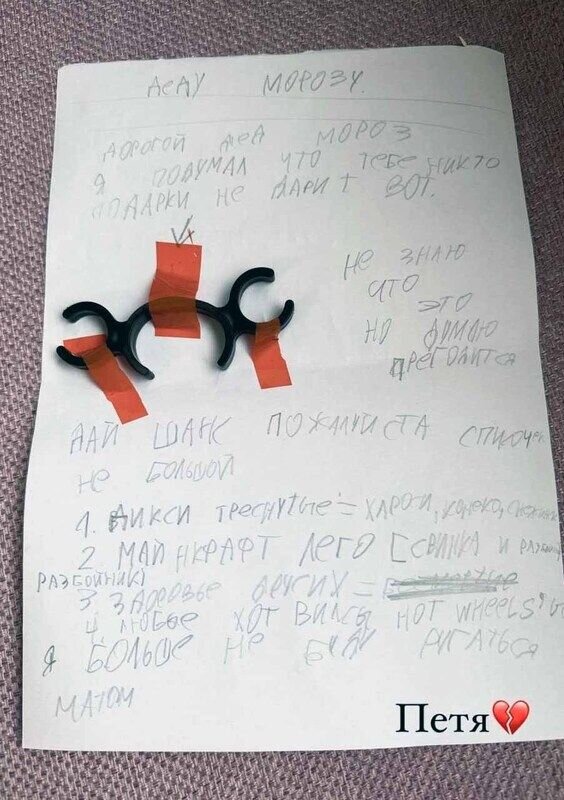 ДеДУ МОРОЗУ.
ДОРОГОЙ ДеД МОРОЗ
Я ПОДУМАЛ ЧТО ТЕБЕ НИКТО
ПОДАРКИ НЕ ДАРИТ ВОТ.
НЕ ЗНАЮ
ЧТО
ЭТО
НО ДУМАЮ
ПРЕГОДИТСЯ
ДАЙ ШАНС ПОЖАЛУИСТА СПИСОЧЕК
НЕ БОЛЬШОЙ
1. ДИКСИ ТРЕСНУТЫЕ =
2 МАЙНКРАФТ ЛЕГО [СВИНКА И
РАЗБОЙНИК)
3 ЗДОРОВЬЕ ДРУГИХ =
4. ЛЮБЫЕ ХОТ ВИЛСЫ HOT WHEELS
Я БОЛЬШЕ НЕ БУДУ РУГАТЬСЯ
МАТОМ
Петя💔